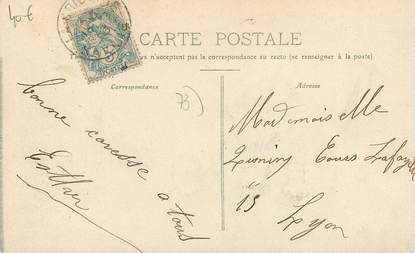 40€
CARTE POSTALE
n'acceptent pas la correspondance au recto (se renseigner à la poste)
Correspondance
Adresse
bonne caresse a tous
Mademoiselle
Cours Lafayette
15
Lyon